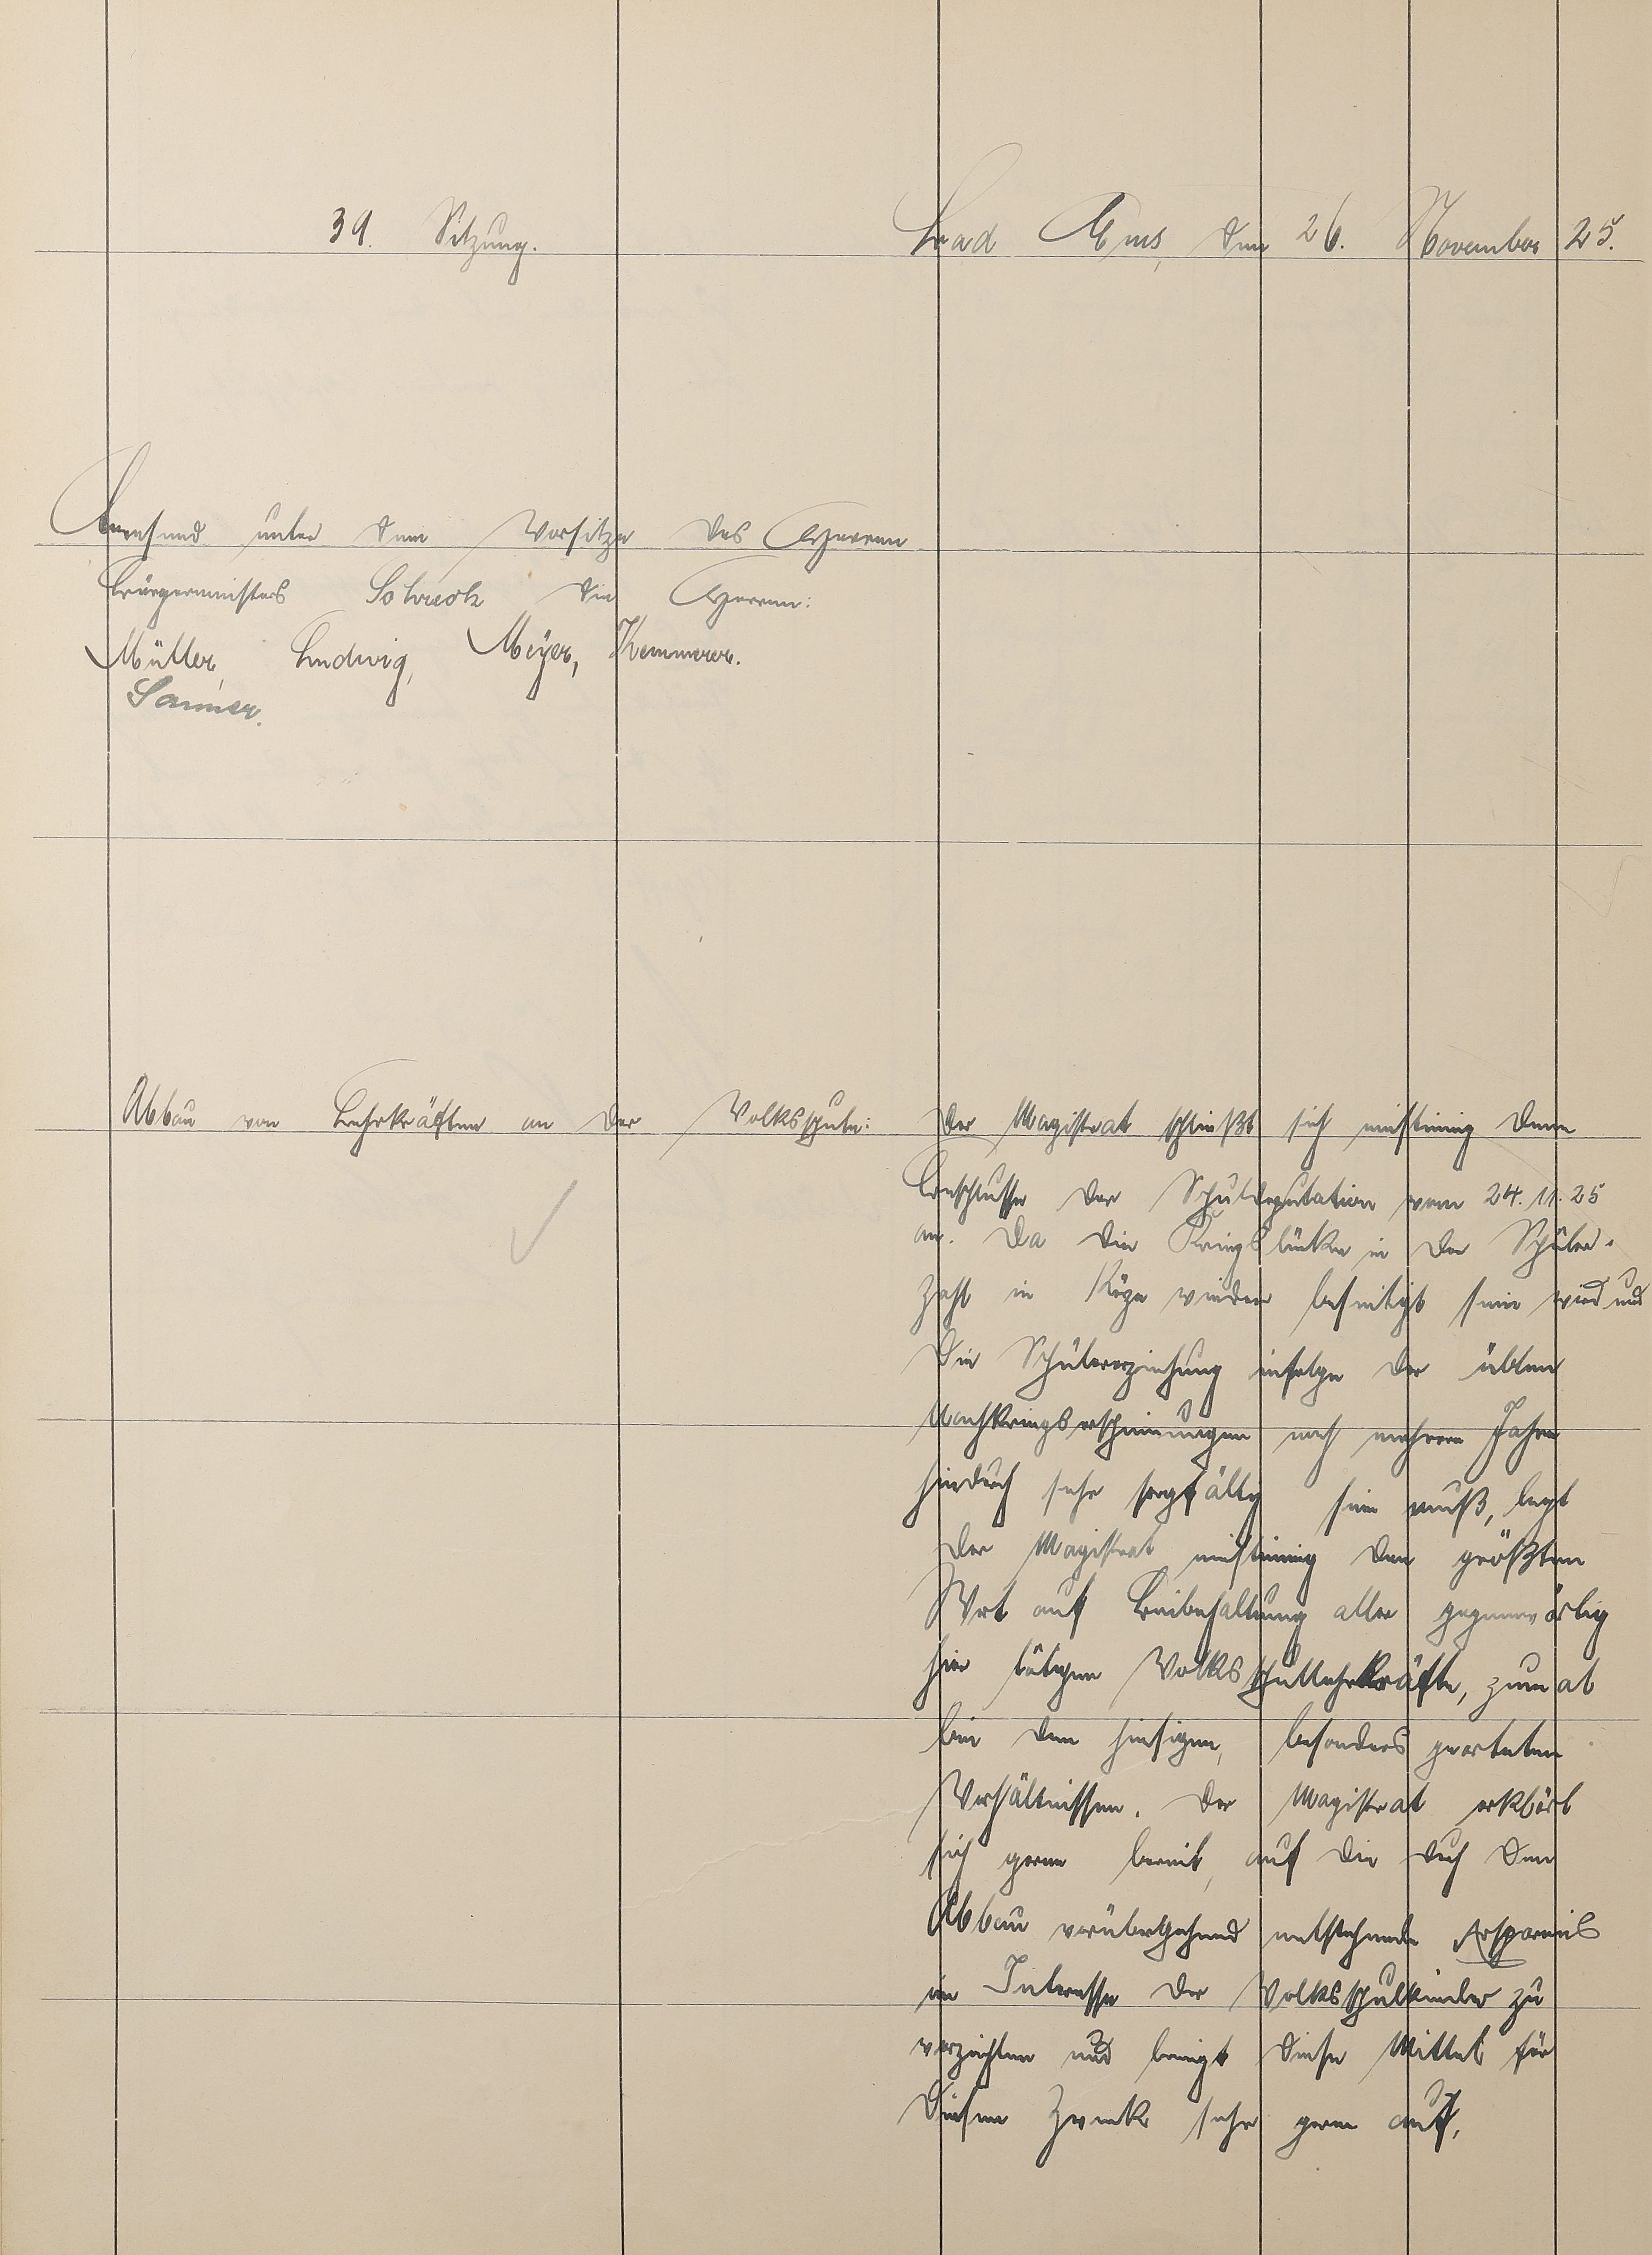 39. Sitzung.
Bad Ems, den 26. November 25.
Anwesend unter dem Vorsitze des Herrn
Bürgermeisters die Herren:
Müller, Ludwig, Meyer, Kemmerer.
Abbau von Lehrkräften an der Volksschule:
Der Magistrat schließt sich einstimmig dem
Beschlusse der Schuldeputation vom 24.11.25
an. Da die Kriegslücke in der Schüler-
zahl in Kürze wieder beseitigt sein wird und
die Schülererziehung infolge der üblen
Nachkriegserscheinungen noch mehrere Jahre
hindurch sehr sorgfältig sein muß, legt
der Magistrat einstimmig den größten
Wert auf Beibehaltung aller gegenwärtig
hier tätigen Volksschullehrkräfte, zumal
bei den hiesigen, besonders gearteten
Verhältnissen. Der Magistrat erklärt
sich gerne bereit, auf die durch den
Abbau vorübergehend entstehende Ersparnis
im Interesse der Volksschulkinder zu
verzichten und bringt diese Mittel für
diesen Zweck sehr gern auf.